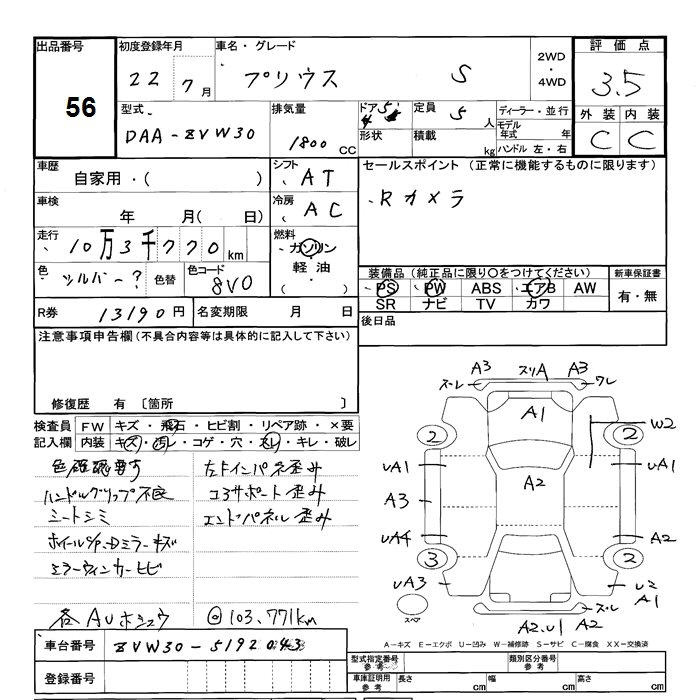 出品番号 56
初度登録年月 22年 7月
車名・グレード プリウス S
2WD・4WD
評価点 3.5
型式 DAA-ZVW30
排気量 1800 CC
ドア 5
形状
定員 5人
積載 kg
ディーラー・並行
モデル年式 年
ハンドル 左・右
外装 C 内装 C
車歴 自家用・( )
シフト AT
セールスポイント(正常に機能するものに限ります)
・Rカメラ
車検 年 月( 日)
冷房 AC
走行 10万3千770km
燃料 ガソリン・軽油・( )
色 シルバー?
色替
色コード 8V0
装備品(純正品に限り○をつけてください)
PS PW ABS エアB AW
SR ナビ TV カワ
新車保証書 有・無
R券 13190円
名変期限 月 日
後日品
注意事項申告欄(不具合内容等は具体的に記入して下さい)
修復歴 有〔箇所 〕
検査員記入欄
FW キズ・飛石・ヒビ割・リペア跡・×要
内装 キズ・汚レ・コゲ・穴・スレ・キレ・破レ
色確認要す 左インパネ歪み
ハンドルグリップ不良 コアサポート歪み
シートシミ エンドパネル歪み
ミラーウィンカーヒビ
各AUホシュウ @103,771km
A3 スリA A3
ズレ ワレ
A1
2 2 W2
UA1 UA1
A2
A3
UA4 A2
3 2
UA3 A1
スペア
ズレ
A2.U1 A2
A-キズ E-エクボ U-凹み W-補修跡 S-サビ C-腐食 XX-交換済
車台番号 ZVW30-5192043
登録番号
型式指定番号 参考
類別区分番号 参考
車庫証明用 参考 長さ cm 幅 cm 高さ cm